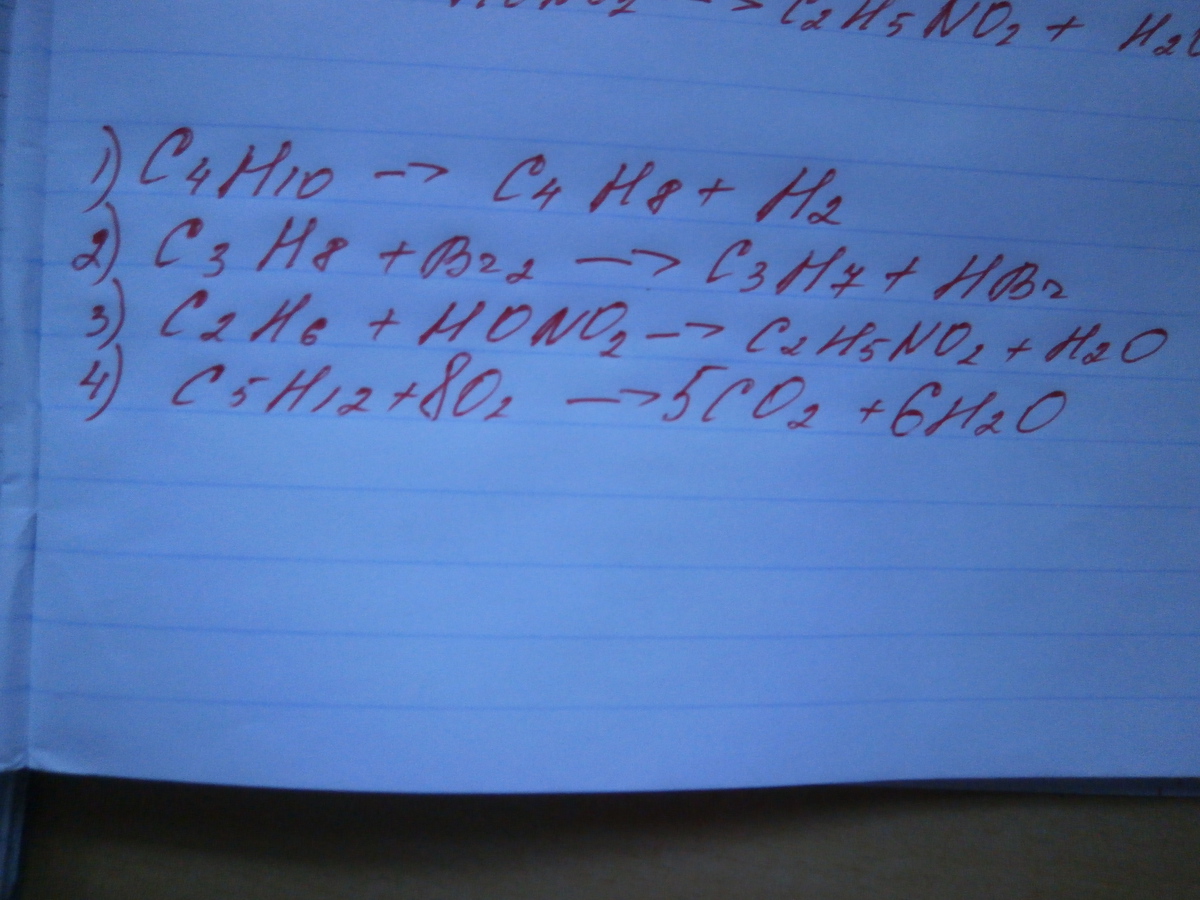 HONO2 -> C2H5NO2 + H2O
1) C4H10 -> C4H8 + H2
2) C3H8 + Br2 -> C3H7 + HBr
3) C2H6 + HONO2 -> C2H5NO2 + H2O
4) C5H12 + 8O2 -> 5CO2 + 6H2O